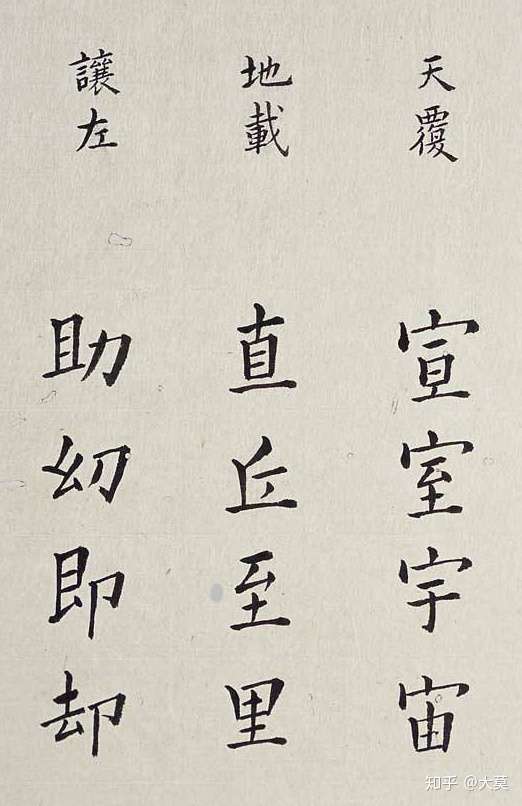 天覆
宣室宇宙
地載
直丘至里
讓左
助幼即却
知乎 @大莫